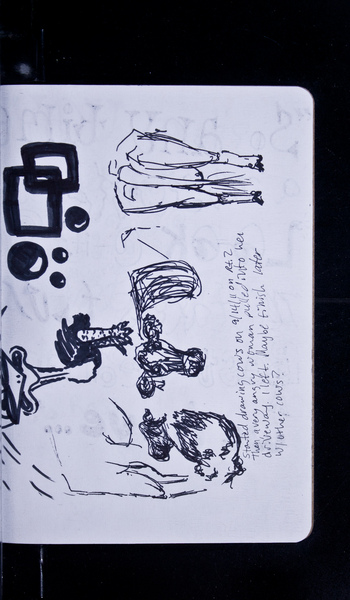 Started drawing cows on 9/14/11 on Rt. 2
Then a very angry woman pulled into her
driveway. I left. Maybe finish later
w/ other cows?